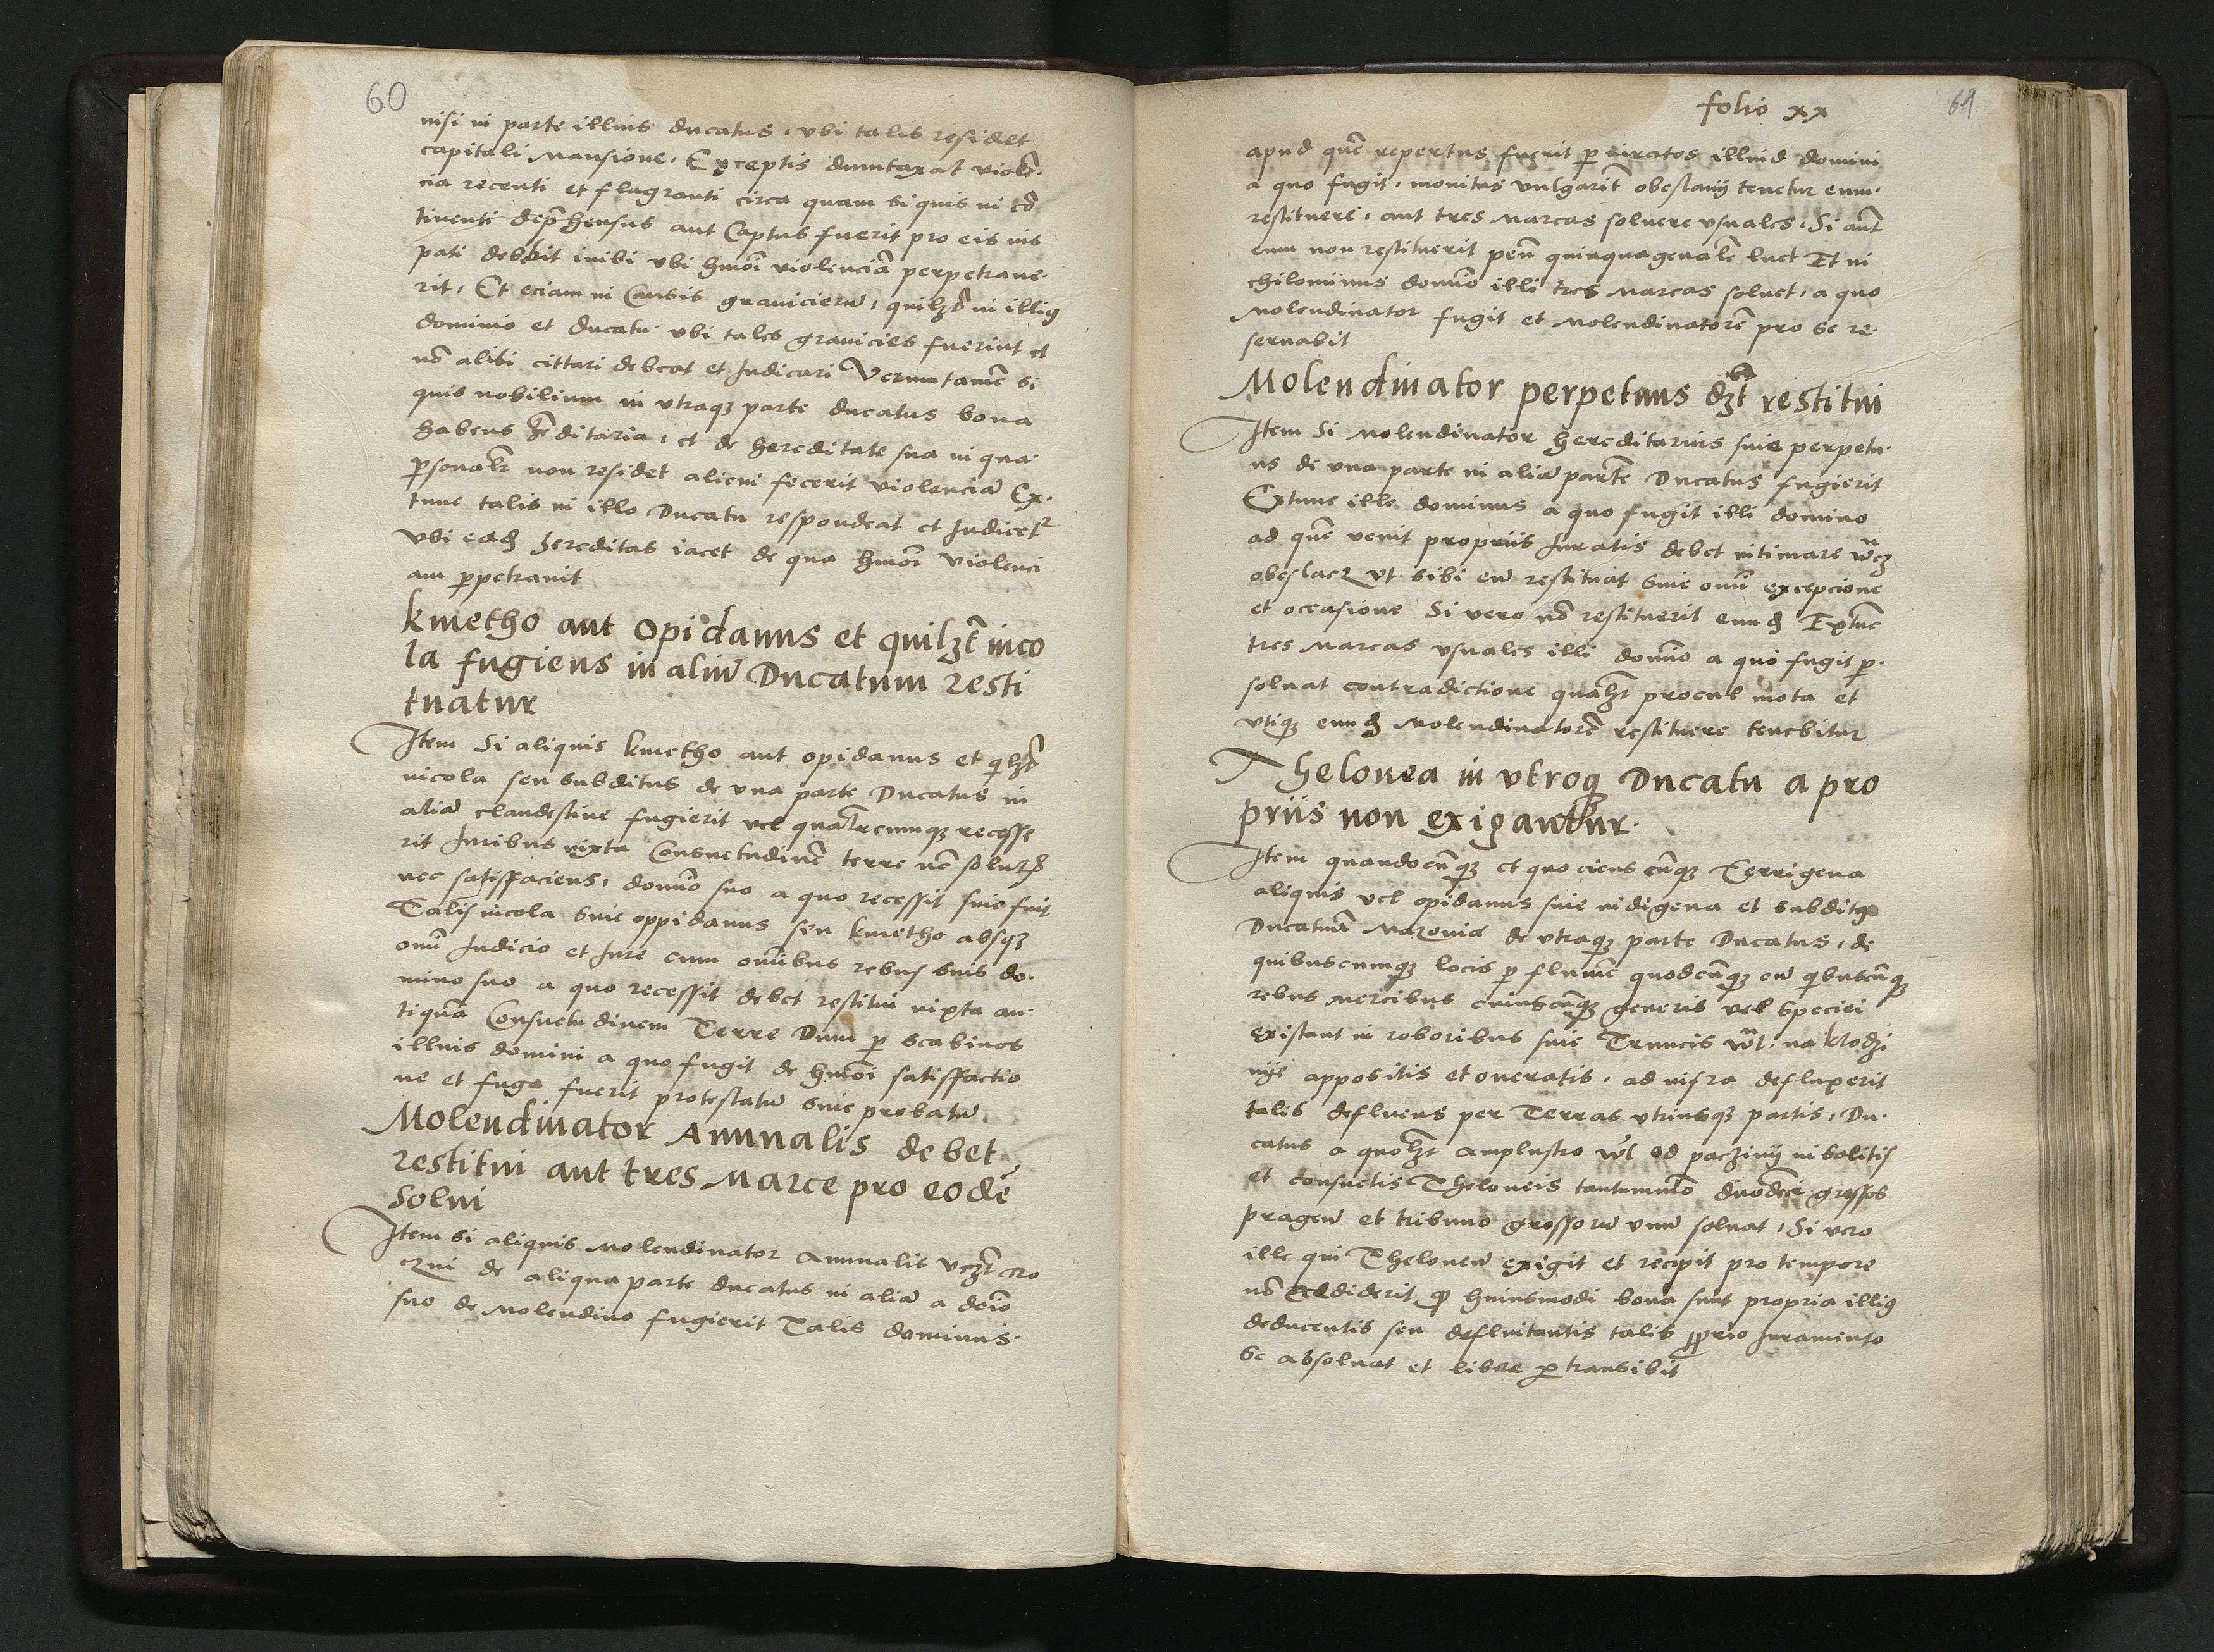 60
nisi in parte illius ducatus, vbi talis residet
capitali Mansione. Exceptis dumtaxat violē-
cia recenti et flagranti circa quam si quis in cō
tinenti dep̄hensus aut Captus fuerit pro eis ius
pati debbit inibi vbi hmōi violenciā perpetraue-
rit, Et eciam in Causis grauicierū, quilzt in illiꝰ
dominio et ducatu vbi tales grauicies fuerint et
nō alibi cittari debeat et Iudicari Verumtamē si
quis nobilium in vtraqꝫ parte ducatus bona
habens hēditaria, et de hereditate sua in qua
ꝑsonalr non residet alicui fecerit violenciā Ex-
tunc talis in illo Ducatu respondeat et Iudicetr
Vbi eadē hereditas iacet de qua hmōi violenci
am ꝑpetrauit
kmetho aut opidanus et quilzt inco
la fugiens in aliū Ducatum resti
tuatur
Item Si aliquis kmetho aut opidanus et qilzt
incola seu subditus de vna parte Ducatus in
aliā clandestine fugierit vel qualrcumqꝫ recesse
rit Iuribus iuxta Consuetudinē terre nō solutis
nec satisfaciens, domīo suo a quo recessit siue fuit
Talis incola siue oppidanus seu kmetho absqꝫ
omī Iudicio et Iure cum omībus rebus suis do-
mino suo a quo recessit debet restitui iuxta an-
tiquā Consuetudinem Terre Dum ꝑ scabinos
illius domini a quo fugit de hmōi satisffactio
ne et fuga fuerit protestatū siue probatū
Molendinator Annualis debet
restitui aut tres Marce pro eodē
Solui
Item si aliquis Molendinator Annualis vczt cro
czni de aliqua parte ducatus in aliā a doīo
suo de Molendino fugierit Talis dominus
folio xx
61
apud quē repertus fuerit ꝑ iuratos illiud domini
a quo fugit, monitus vulgarit obeslanÿ tenetur eum
restituere, aut tres Marcas soluere vsuales, Si aūt
eum non restituerit penā quinquagenalē luet Et ni
chilominus domīo illi tres Marcas soluet, a quo
Molendinator fugit et Molendinatorē pro se re-
seruabit
Molendinator perpetuus dzt restitui
Item Si Molendinator hereditarius siue perpetu-
us de vna parte in aliā partē Ducatus fugierit
Extunc ille dominus a quo fugit illi domino
ad quē venit propriis Iuratis debet intimare vlcz
obeslacz vt sibi eū restituat siue omī excepcione
et occasione Si vero nō restituerit eundē Extūc
tres Marcas vsuales illi domīo a quo fugit ꝑ-
soluat contradictione qualzt procul mota et
vtiqꝫ eundē Molendinatorē restituere tenebitur
Thelonea in vtroqꝫ Ducatu a pro
priis non exigantur
Item quandocūqꝫ et quociens cūqꝫ Terrigena
aliquis vel opidanus siue indigena et subditꝰ
Ducatuū Mazouie de vtraqꝫ parte Ducatus, de
quibuscumqꝫ locis ꝑ flumē quodcūqꝫ cū qibuscūqꝫ
rebus Mercibus cuiuscūqꝫ generis vel speciei
existant in roboribus siue Truncis vl na klodzi
nÿe appositis et oneratis, ad infra defluxerit
talis defluens per Terras vtriusqꝫ partis, Du-
catus a quolzt amplustro vl od paczinÿ in solitis
et consuetis Theloneis tantummō duodecī grossos
pragen̄ et tribuno grossorū vnū soluat, Si vero
ille qui Theloneū exigit et recipit pro tempore
nō crediderit qd huiusmodi bona sunt propria illiꝰ
deducentis seu defluitantis talis ꝓprio Iuramento
se absoluat et libere ꝑtransibit